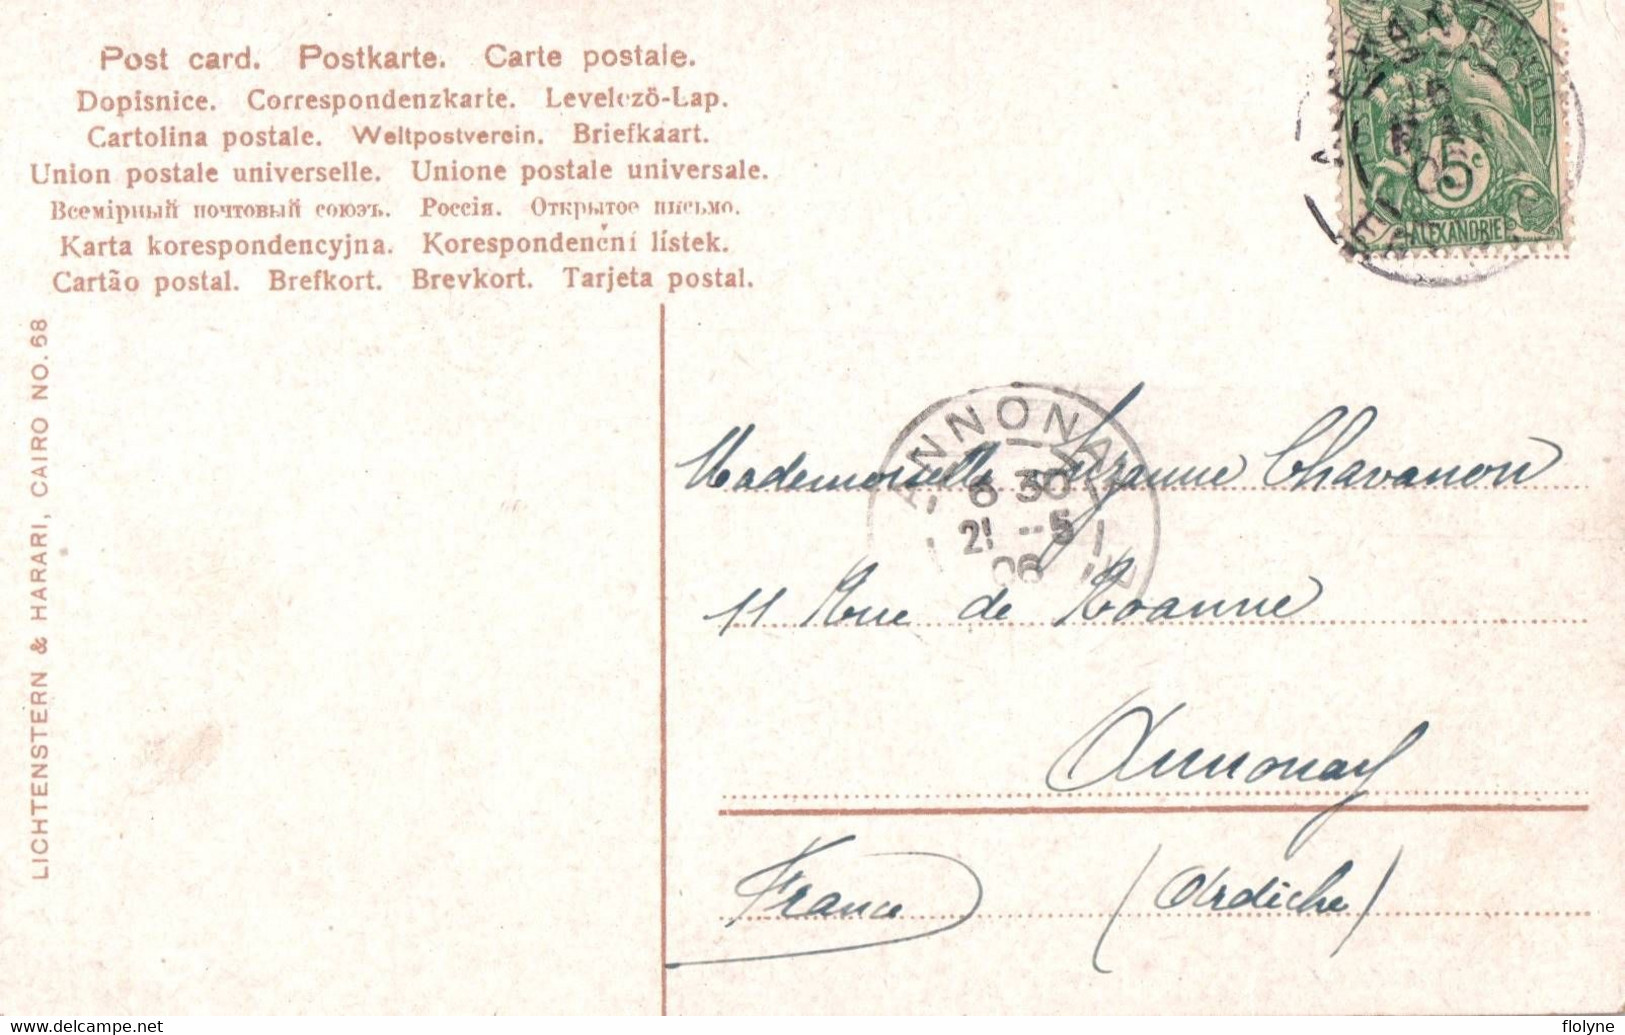 Post card. Postkarte. Carte postale.
Dopisnice. Correspondenzkarte. Levelező-Lap.
Cartolina postale. Weltpostverein. Briefkaart.
Union postale universelle. Unione postale universale.
Всемірный почтовый союзъ. Россія. Открытое письмо.
Karta korespondencyjna. Korespondenční lístek.
Cartão postal. Brefkort. Brevkort. Tarjeta postal.
5c
ALEXANDRIE
15
MAI
05
LICHTENSTERN & HARARI, CAIRO NO. 68
ANNONAY
6 30
21 -- 5
06
Mademoiselle Suzanne Chavanon
11 Rue de Roanne
Annonay
France (Ardèche)
delcampe.net
flolyne